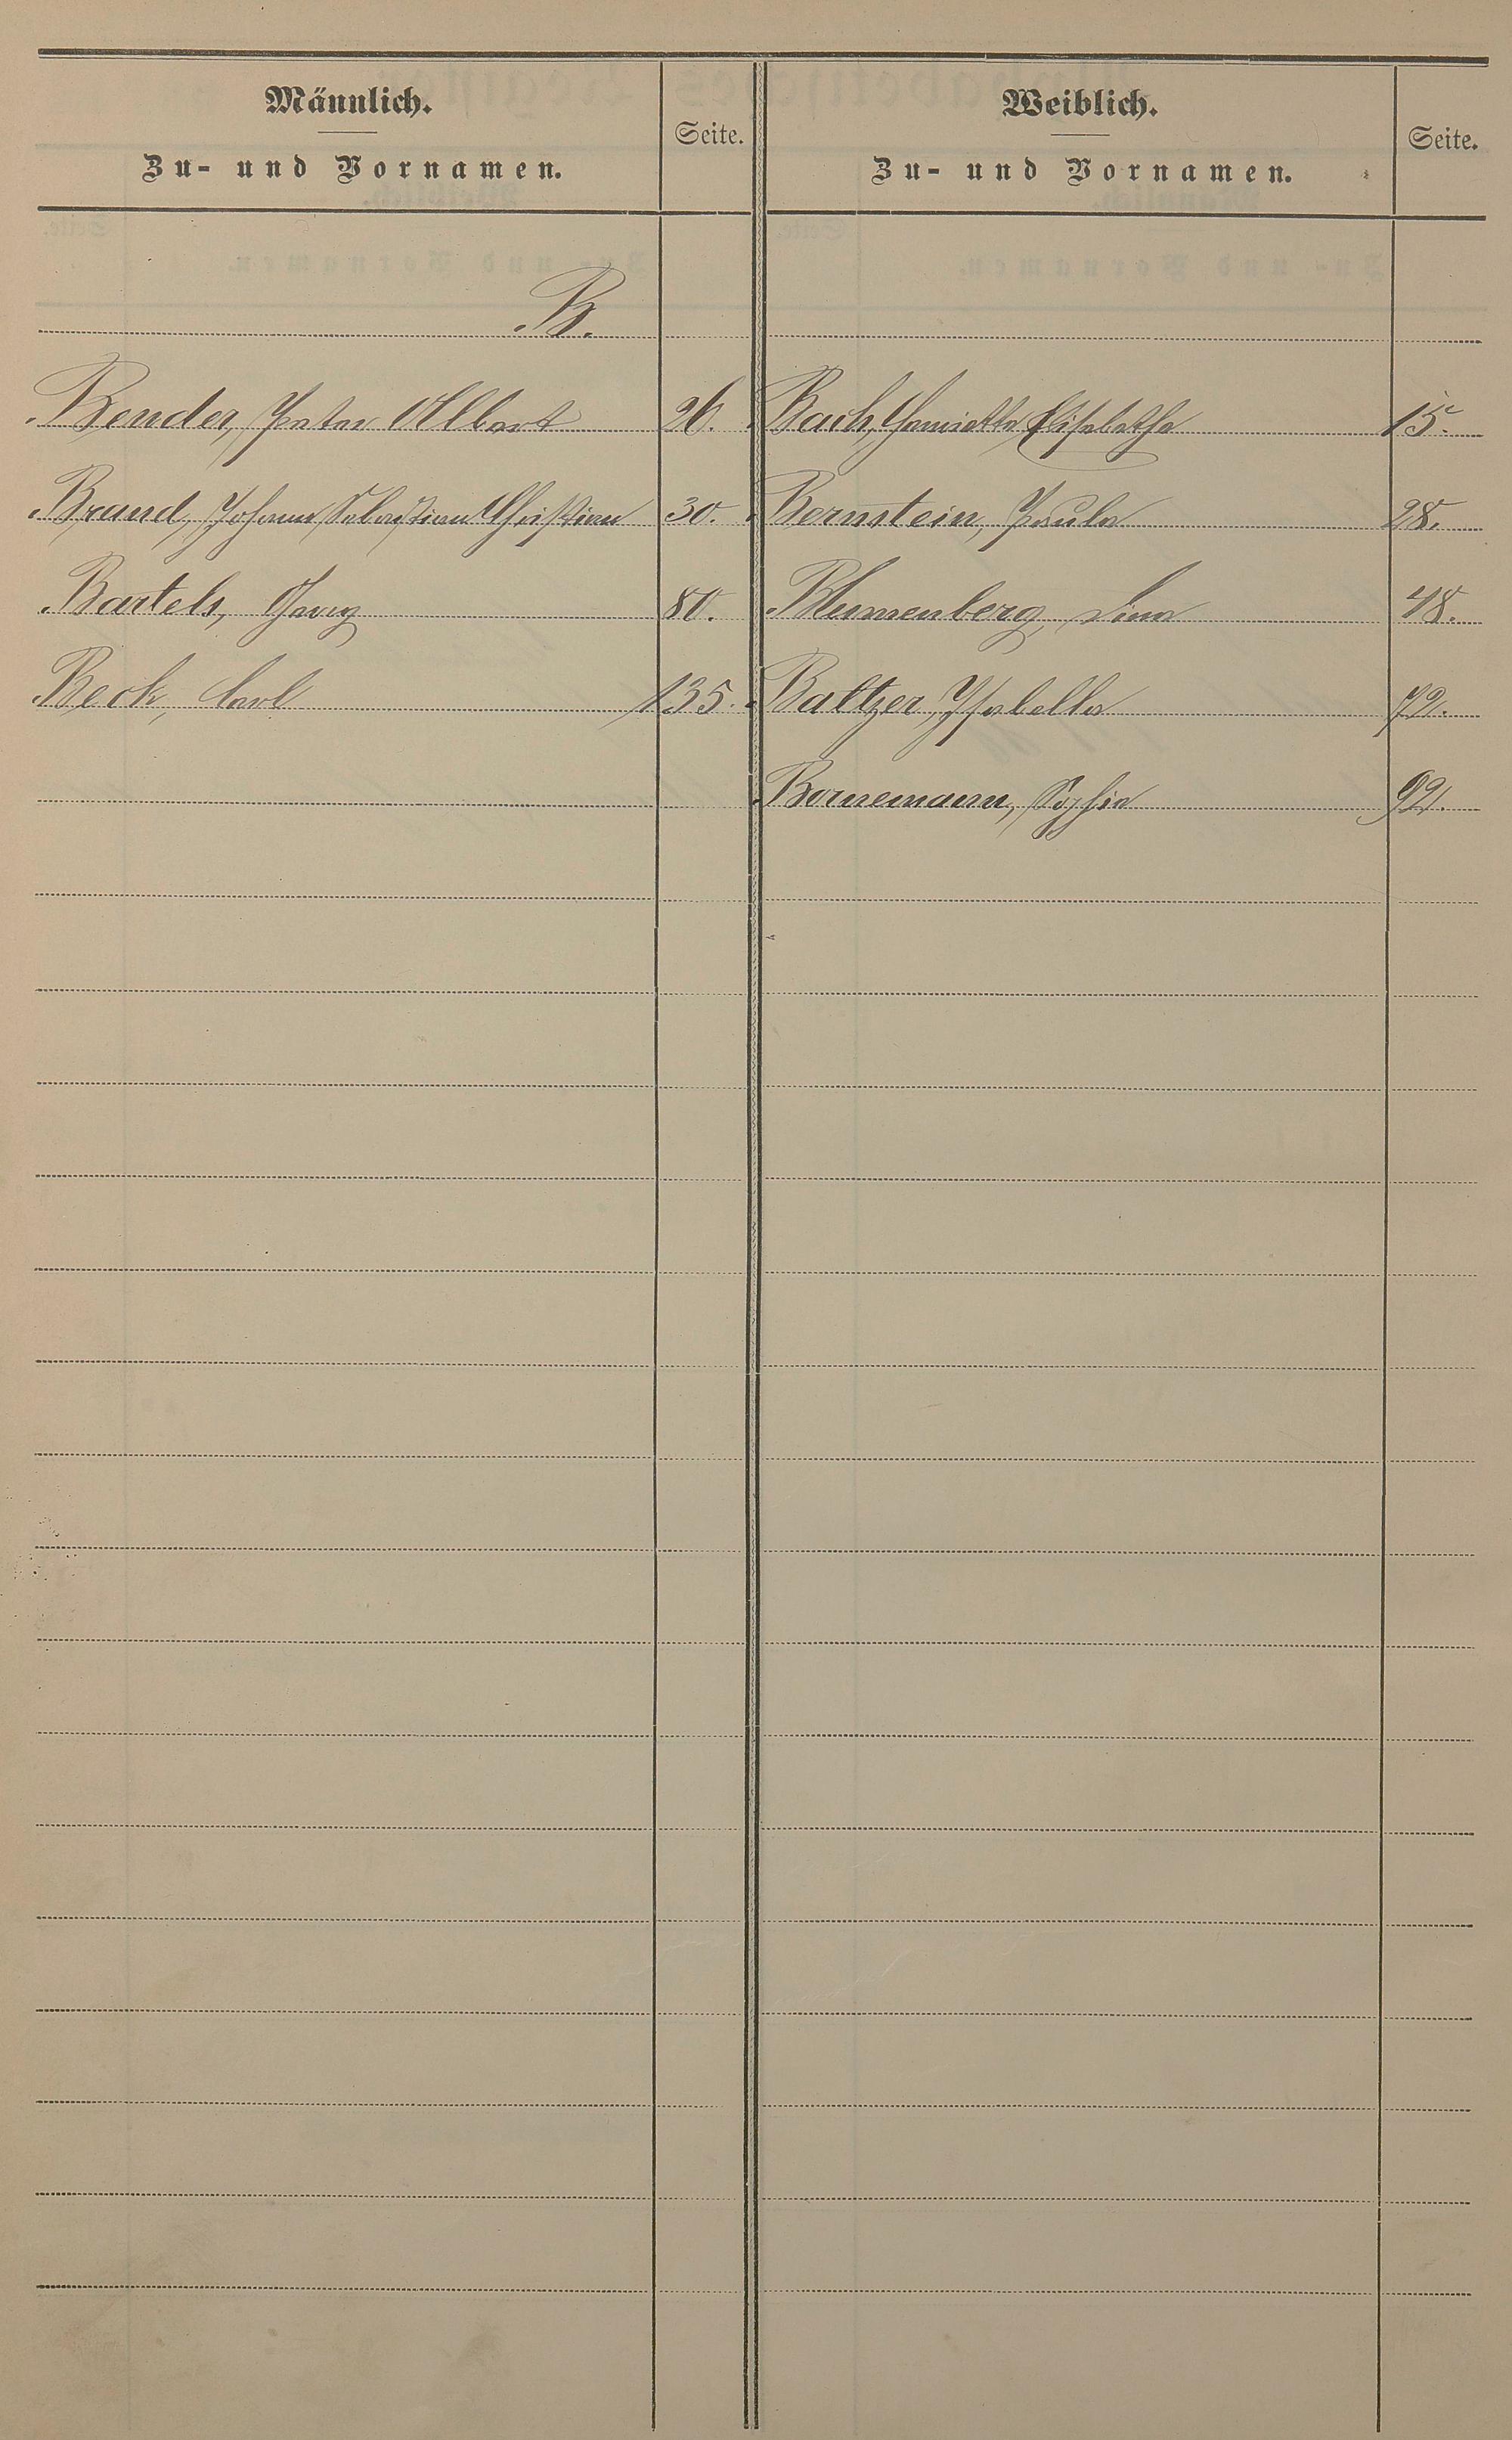 Männlich.
Zu- und Vornamen.
Seite.
Weiblich.
Zu- und Vornamen.
Seite.
B.
Bender, Peter Albert 26.
Brand, Johann Sebastian Christian 30.
Bartels, Georg 80.
Beck, Carl 135.
Bach, Henriette Elisabetha 15.
Bernstein, Paula 28.
Blumenberg, Lina 48.
Baltzer, Isabella 72.
Bornemann, Sophie 92.